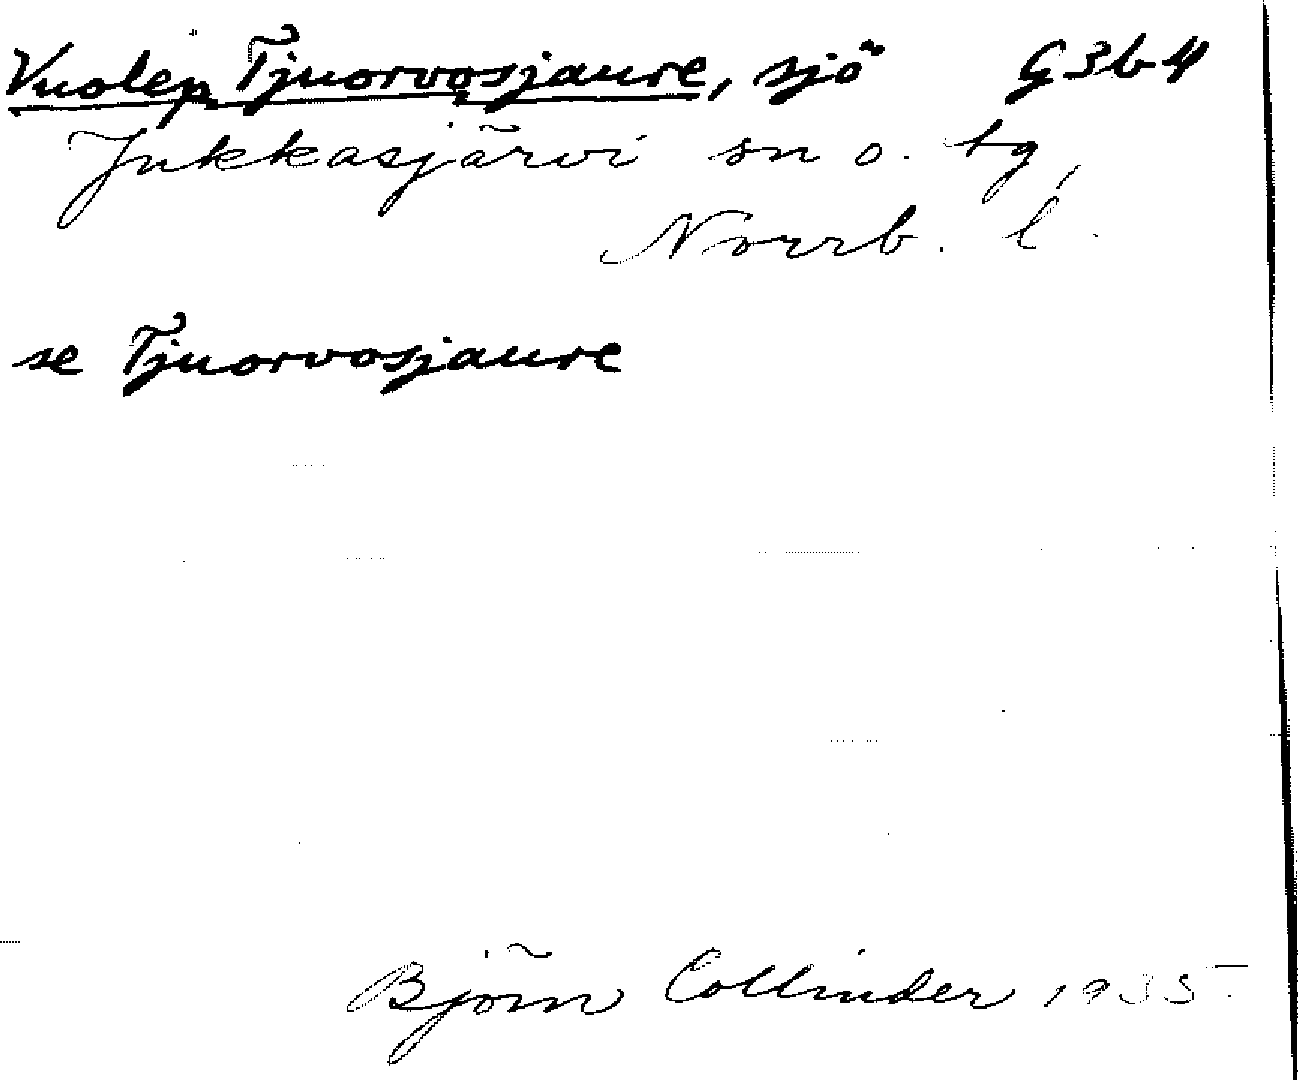 Vuolep Tjuorvosjaure, sjö G3b4
Jukkasjärvi sn o. tg,
Norrb. l.
se Tjuorvosjaure
Björn Collinder 1935.